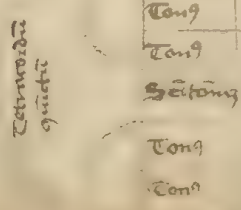 Tetracordū
quītū
Tonꝰ
Tonꝰ
Seītoniꝰ
Tonꝰ
Tonꝰ